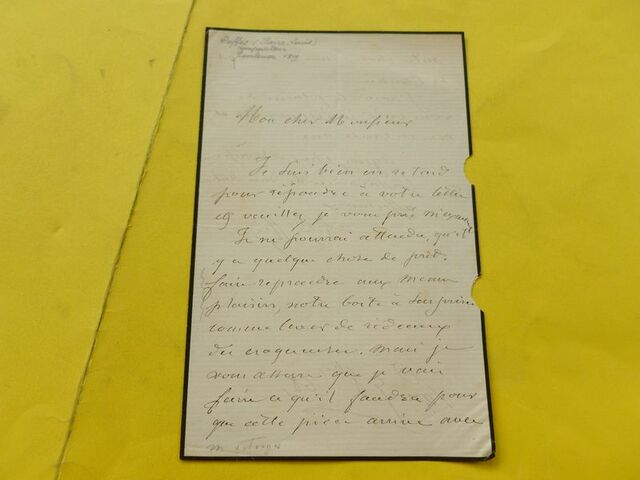 Deffès (Pierre Louis)
compositeur
Toulouse 1819
Mon cher Monsieur
Je suis bien en retard
pour répondre à votre lettre
et veuillez, je vous prie m'excuser
Je ne pourrai attendre, qu'il
y a quelque chose de prêt.
faire reprendre aux menus
plaisirs, notre boîte à surprise
comme lever de rideaux
du croquemitaine. mais je
vous assure que je vais
faire ce qu'il faudra pour
que cette pièce arrive avec